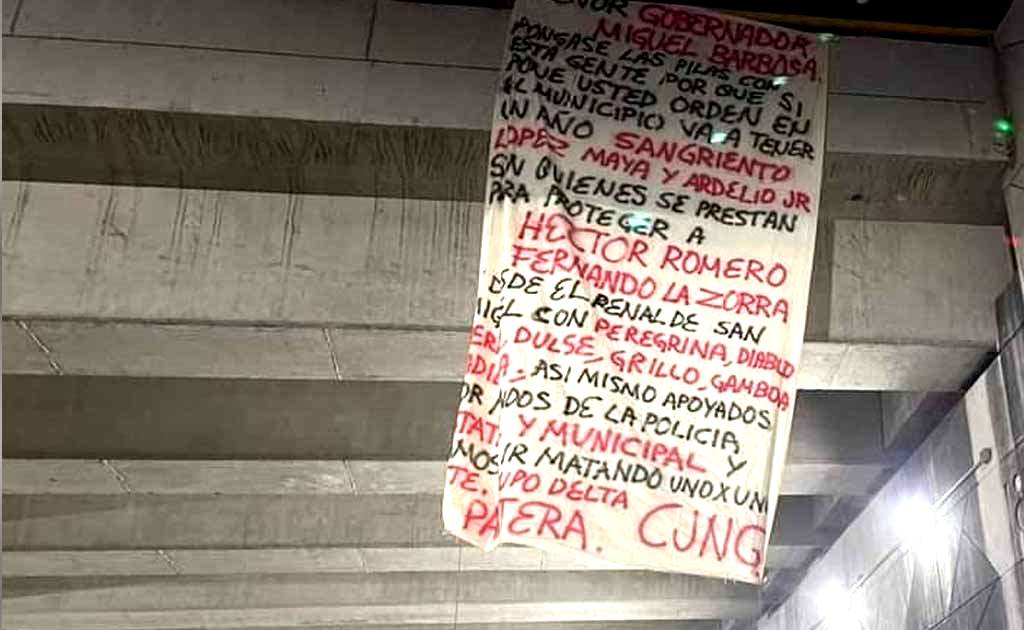 GOBERNADOR
MIGUEL BARBOSA.
PONGASE LAS PILAS CON
ESTA GENTE POR QUE SI,
PONE USTED ORDEN EN
EL MUNICIPIO VA A TENER
UN AÑO SANGRIENTO
LOPEZ MAYA Y ARDELIO JR
SN QUIENES SE PRESTAN
PRA PROTEGER A
HECTOR ROMERO
FERNANDO LA ZORRA
SDE EL PENAL DE SAN
CON PEREGRINA, DIABLO
DULSE, GRILLO, GAMBOA
ASI MISMO APOYADOS
DOS DE LA POLICIA,
Y MUNICIPAL Y
MOS IR MATANDO UNO X UN
TE. UPO DELTA
PATERA. CJNG